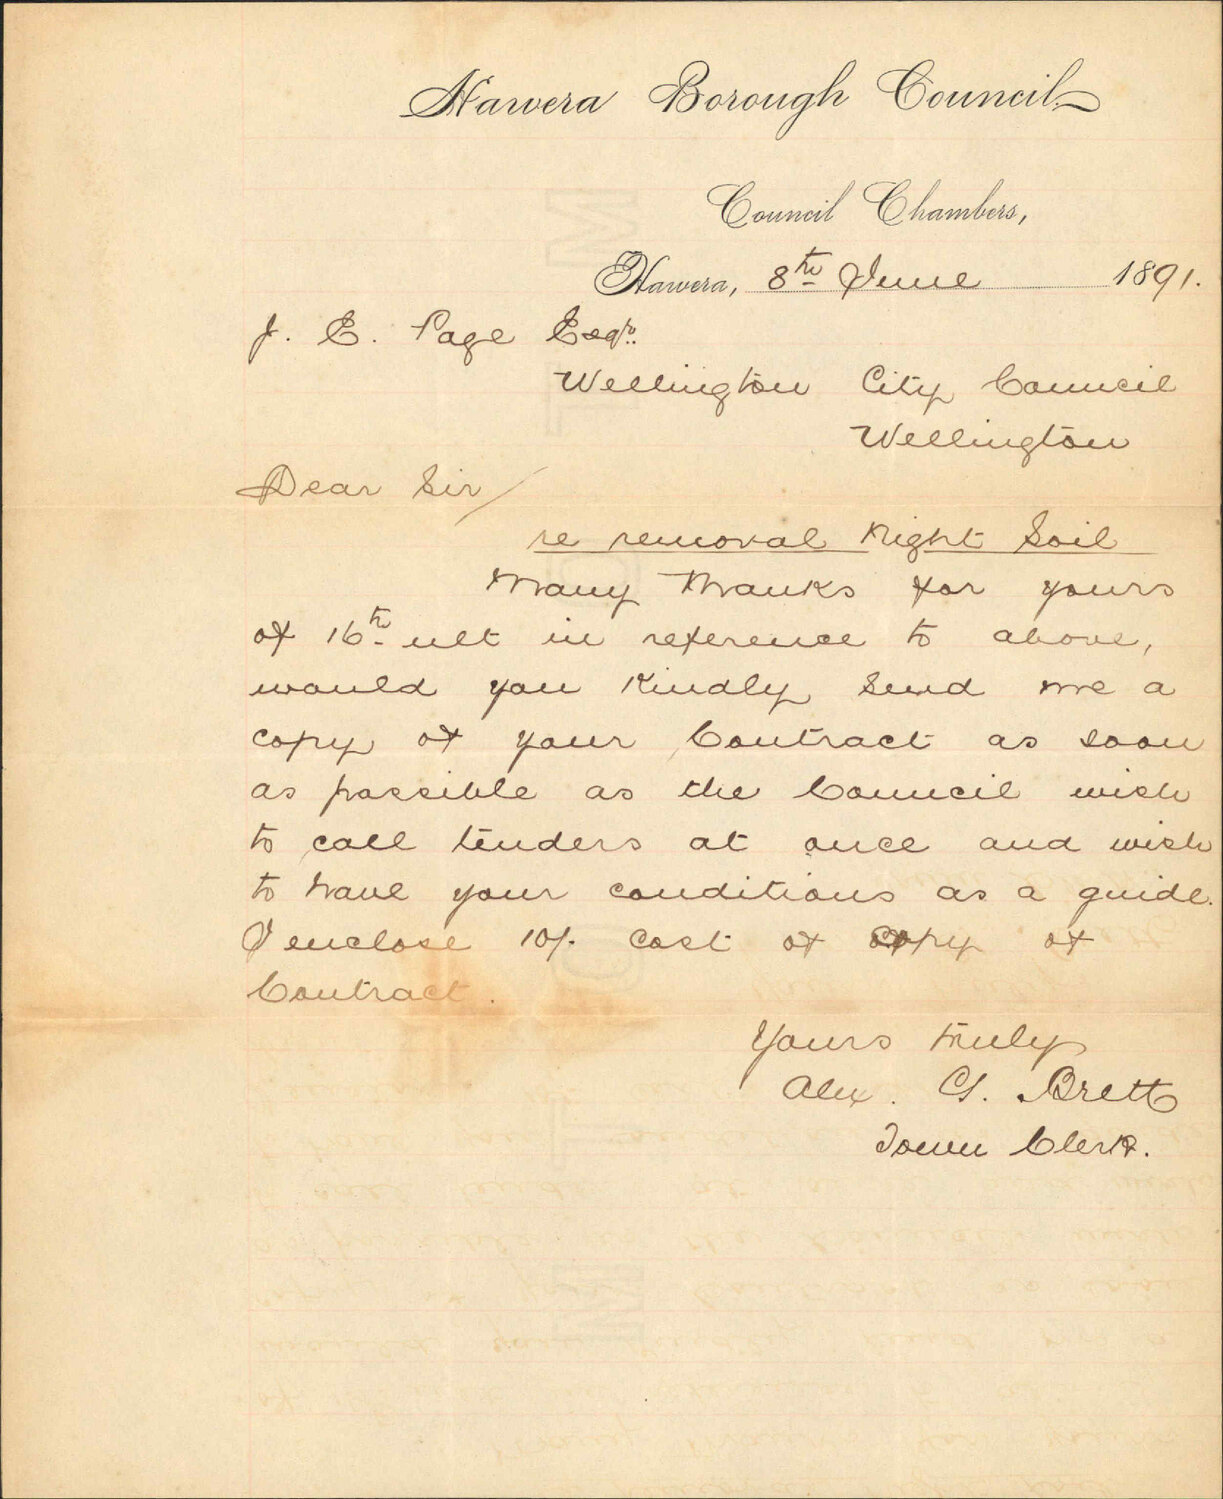 Hawera Borough Council
Council Chambers,
Hawera, 8th June 1891.
J. E. Page Esqr.
Wellington City Council
Wellington
Dear Sir/
re removal Night Soil
Many thanks for yours
of 16th ult in reference to above,
would you kindly send me a
copy of your Contract as soon
as possible as the Council wish
to call tenders at once and wish
to have your conditions as a guide.
I enclose 10/- cost of copy of
Contract.
Yours truly
Alex. G. Brett
Town Clerk.